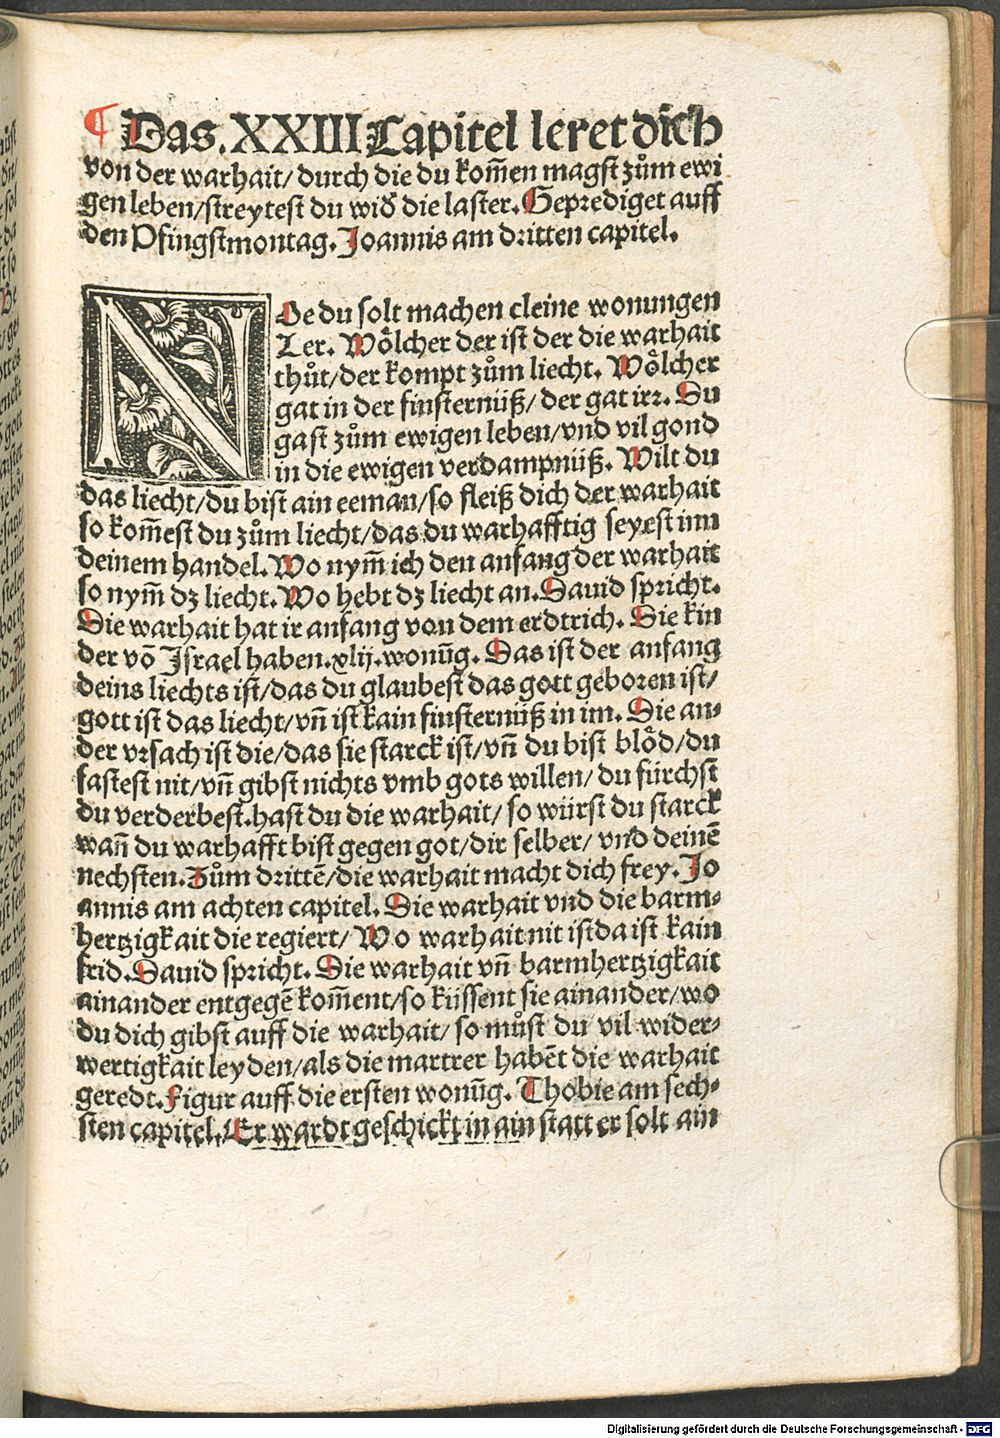 ¶ Das. XXIII Capitel leret dich
von der warhait/ durch die du kom̄en magst zům ewi
gen leben/ streytest du wid᷑ die laster. Geprediget auff
den Pfingstmontag. Joannis am dritten capitel.
N Oe du solt machen cleine wonungen
Ter. Woͤlcher der ist der die warhait
thůt/ der kompt zům liecht. Woͤlcher
gat in der finsternüß/ der gat irꝛ. Du
gast zům ewigen leben/ vnd vil gond
in die ewigen verdampnüß. Wilt du
das liecht/ du bist ain eeman/ so fleiß dich der warhait
so kom̄est du zům liecht/ das du warhafftig seyest inn
deinem handel. Wo nym̄ ich den anfang der warhait
so nym̄ dz liecht. Wo hebt dz liecht an. Dauid spricht.
Die warhait hat ir anfang von dem erdtrich. Die kin
der vō Israel haben .xlij. wonūg. Das ist der anfang
deins liechts ist/ das du glaubest das gott geboren ist/
gott ist das liecht/ vn̄ ist kain finsternüß in im. Die an⸗
der vrsach ist die/ das sie starck ist/ vn̄ du bist bloͤd/ du
fastest nit/ vn̄ gibst nichts vmb gots willen/ du fürchst
du verderbest. hast du die warhait/ so würst du starck
wan̄ du warhafft bist gegen got/ dir selber/ vnd deinē
nechsten. Zům drittē/ die warhait macht dich frey. Jo
annis am achten capitel. Die warhait vnd die barm⸗
hertzigkait die regiert/ Wo warhait nit ist da ist kain
frid. Dauid spricht. Die warhait vn̄ barmhertzigkait
ainander entgegē kom̄ent/ so küssent sie ainander/ wo
du dich gibst auff die warhait/ so můst du vil wider⸗
wertigkait leyden/ als die martrer habēt die warhait
geredt. Figur auff die ersten wonūg. Thobie am sech⸗
sten capitel. Er wardt geschickt in ain statt er solt ain
Digitalisierung gefördert durch die Deutsche Forschungsgemeinschaft - DFG